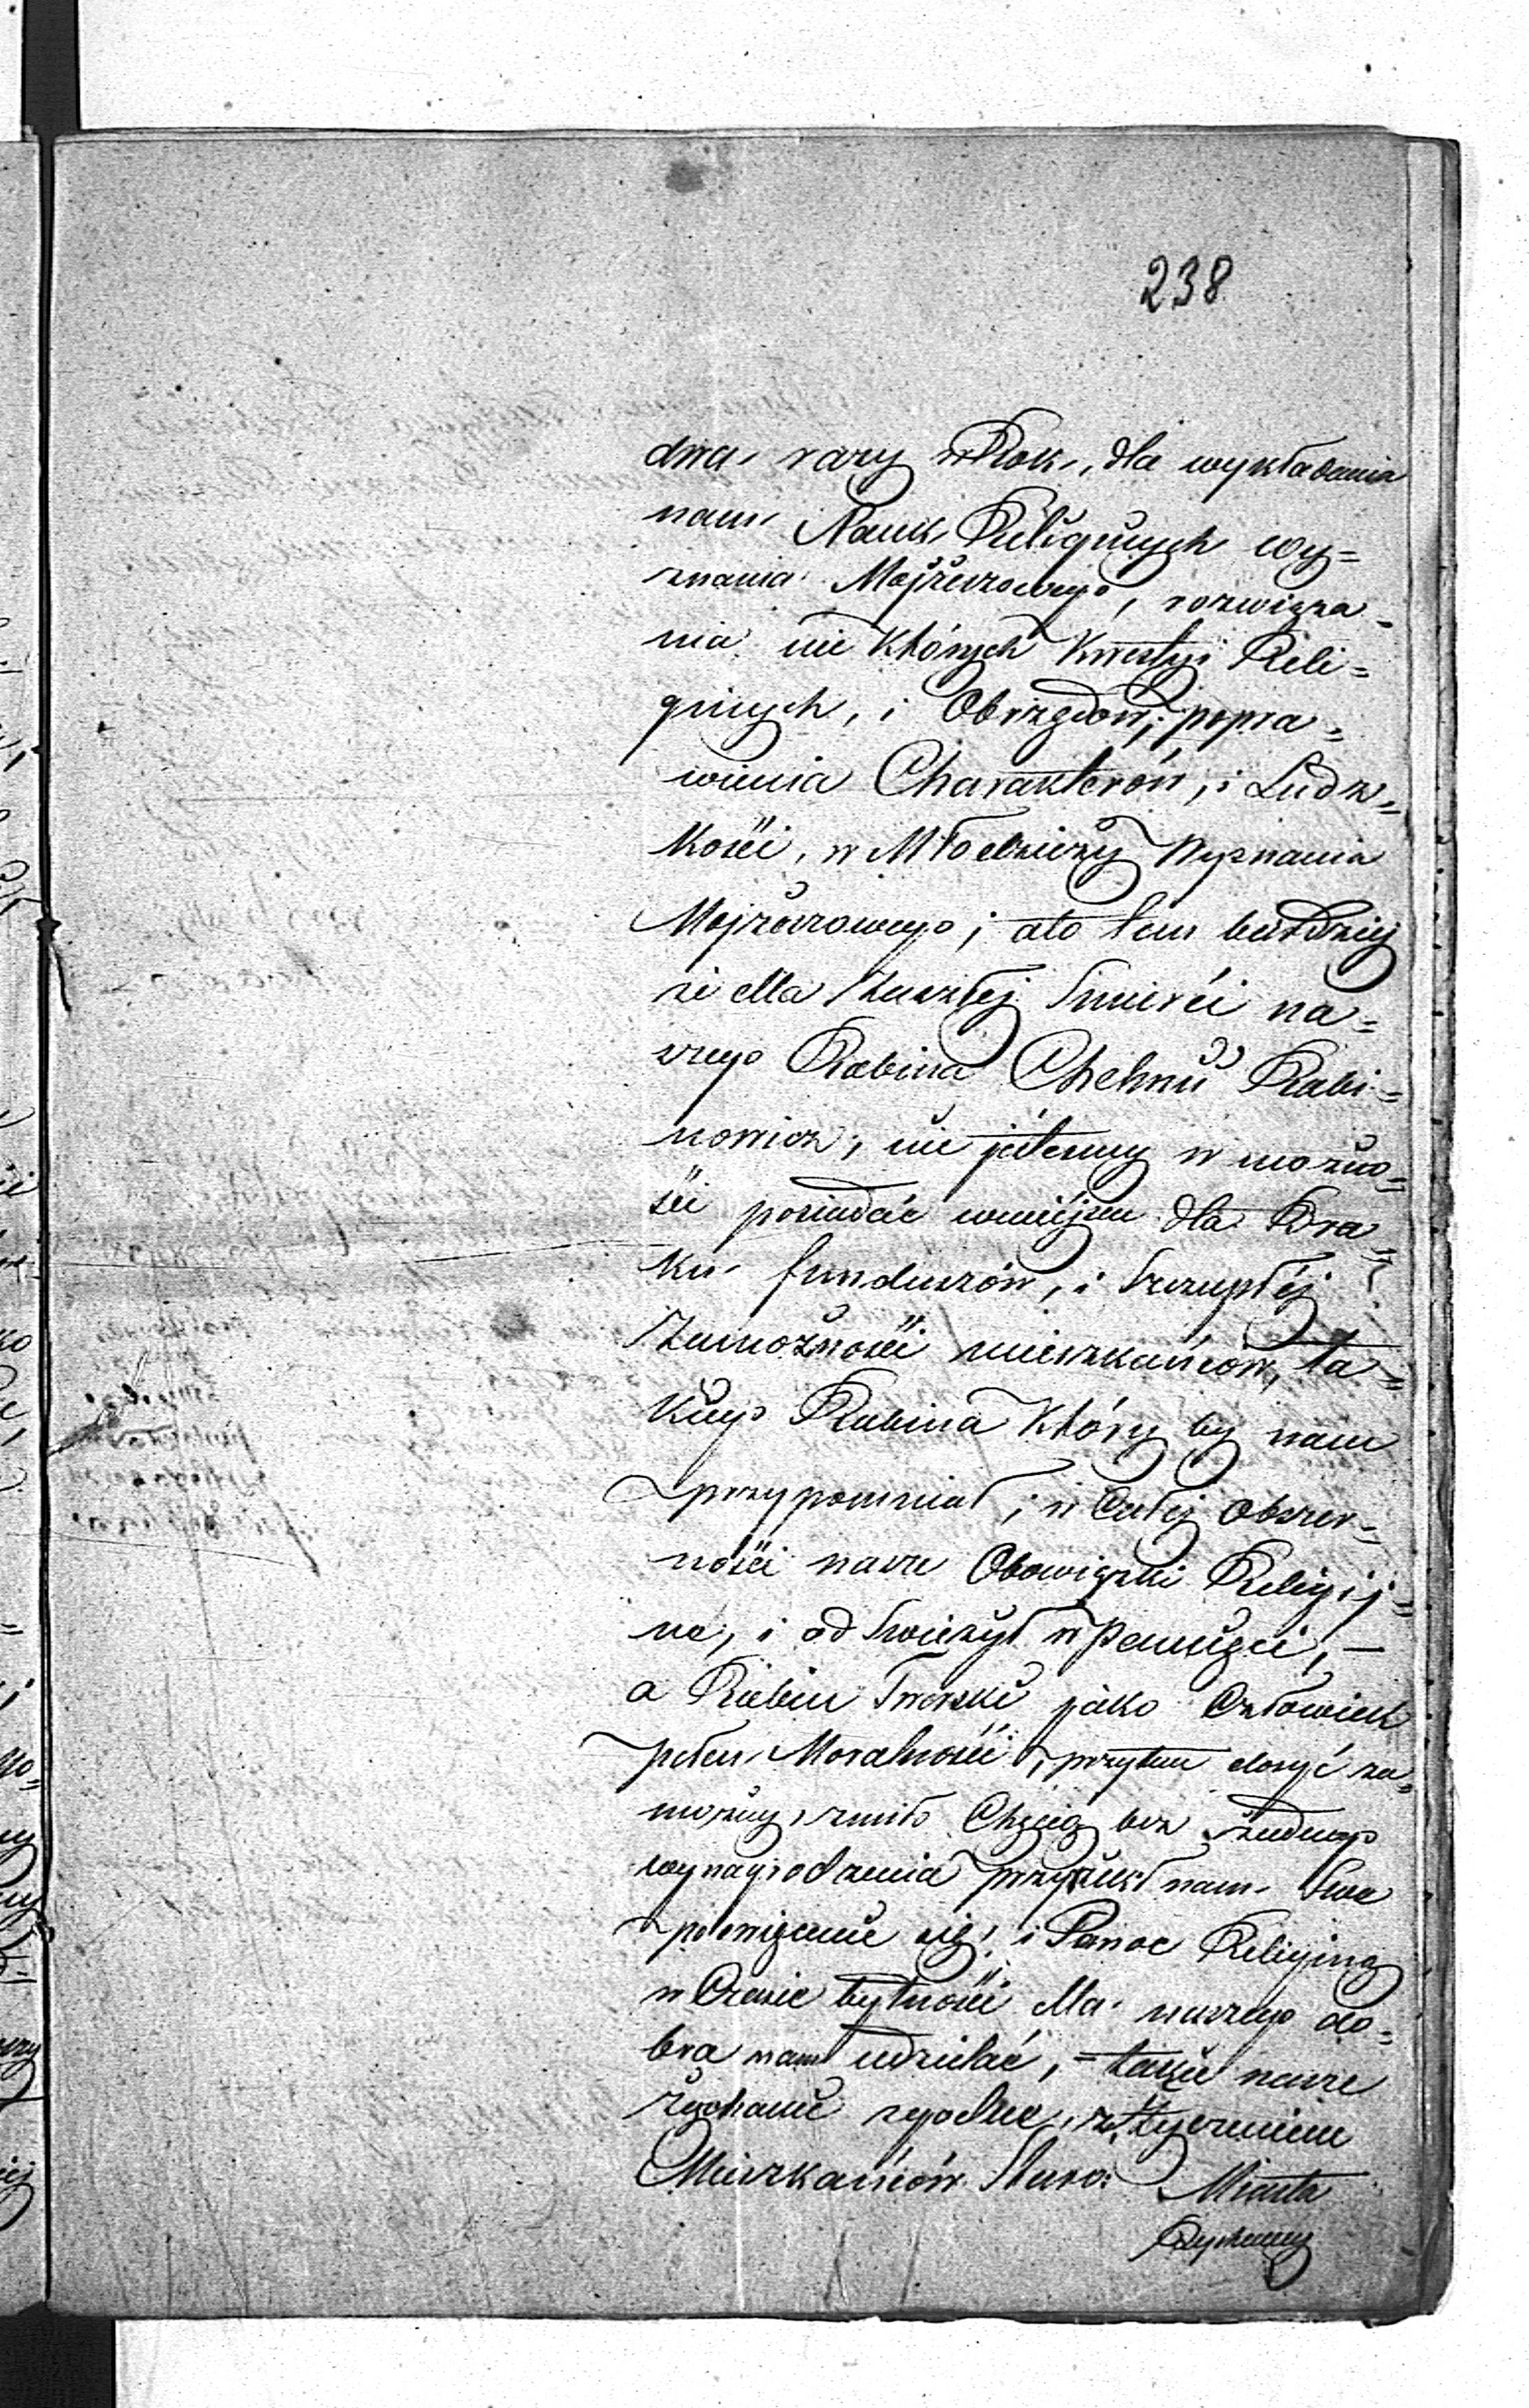 238
dwa razy w Rok, dla wykładania
nam Nauk Religijnych wy=
znania Mojżeszowego, rozwiąza=
nia nie których Kwestyi Reli=
gijnych, i Obrzędów, popra=
wienia Charakterów, i Ludz=
kości, w Młodzieży Wyznania
Mojżeszowego; ato tem bardziej
że dla Zaszłej Śmierci na=
szego Rabina Chelmú Rabi=
nowicz, nie jestesmy w możno=
ści posiadać wmiejscu dla Bra=
ku funduszów, i Szczupłéj
Zamożności mieszkańców, ta=
kiego Rabina Który by nam
przypomniał, w Całej Obszer=
ności nasze Obowiązki Religij=
ne, i od Swieżył w Pamięci, —
a Rabin Twerski jako Człowiek
pełen Moralności, przytem dosyć za=
możny, z miłą Chęcią bez żadnego
wynagrodzenia przyrzekł nam Swe
poświęcenie się, i Pomoc Religijną
w Czasie bytności dla naszego do=
bra nam udzielać, = takie nasze
żądanie zgodne, z życzeniem
Mieszkańców Staro: Miasta